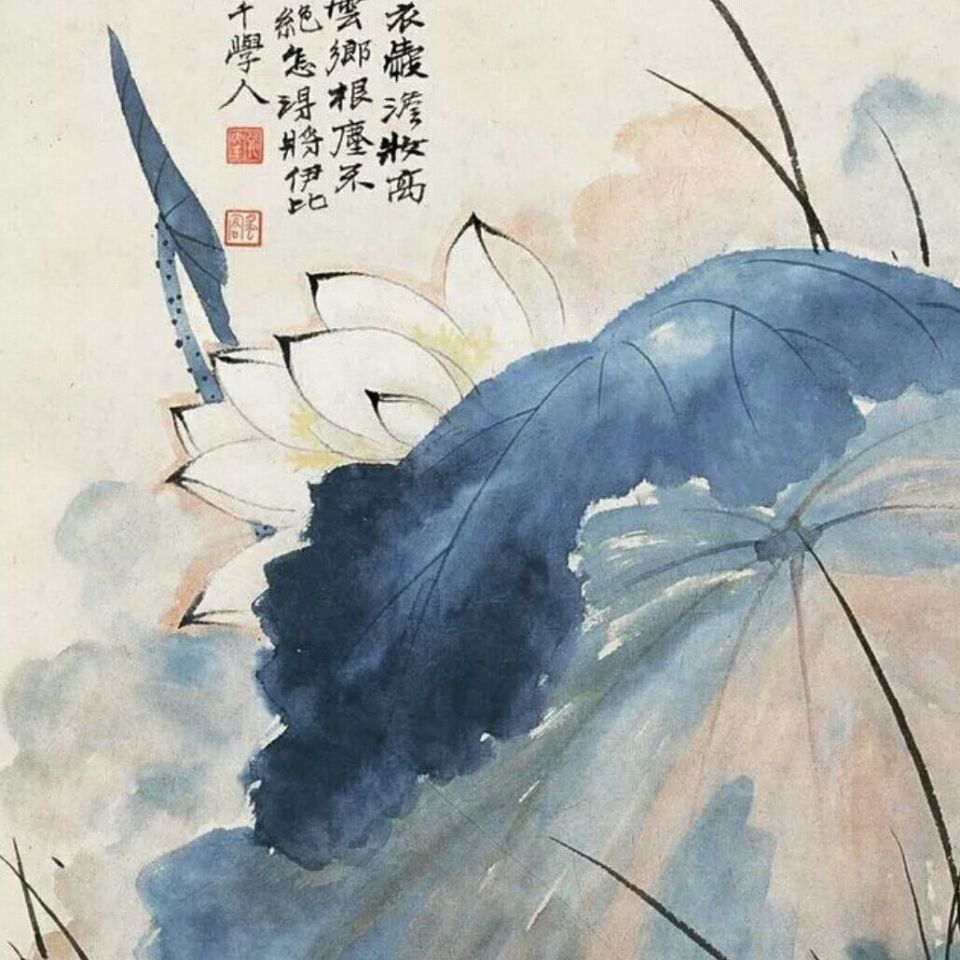 衣澹妝高
雲鄉根塵不
絕怎得將伊比
千學人